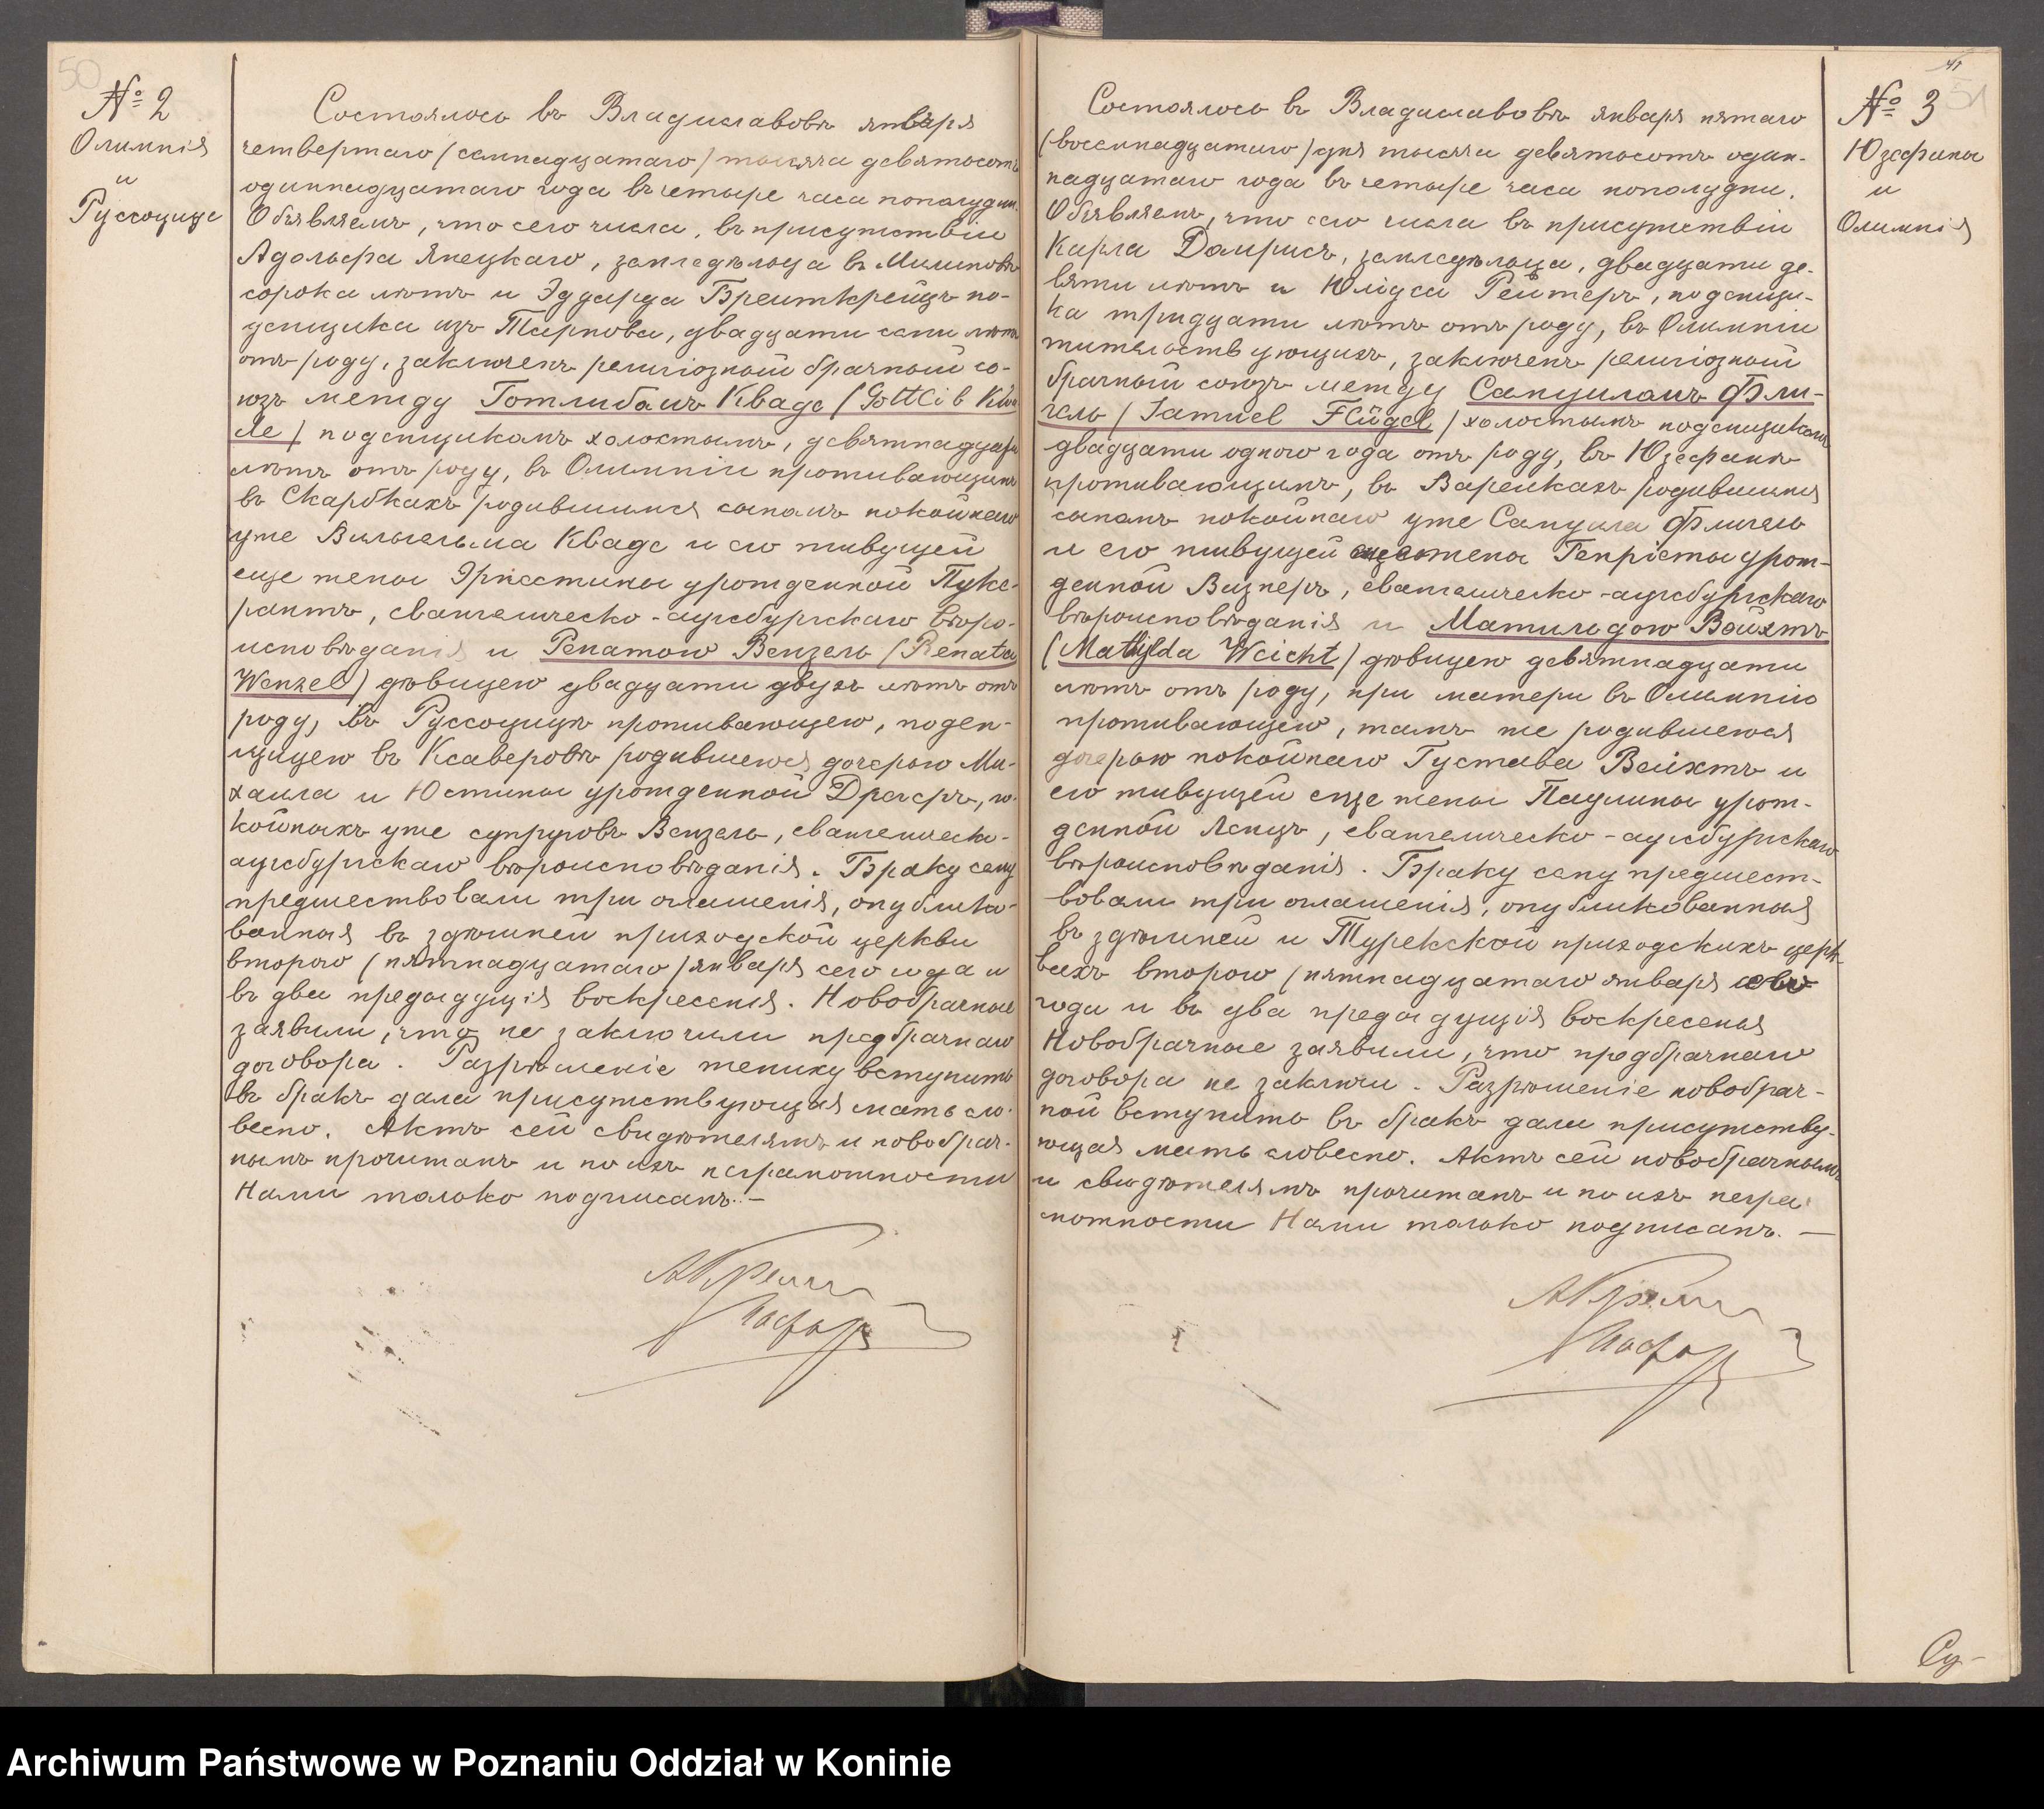 50
№ 2
Олимпія
и
Руссоцице
Состоялось въ Владиславовѣ января
четвертаго (семнадцатаго) тысяча девятьсотъ
одиннадцатаго года въ четыре часа пополудни.
Объявляемъ, что сего числа, въ присутствіи
Адольфа Янецкаго, земледѣльца въ Милиновѣ
сорока лѣтъ и Эдуарда Брейткрейцъ по-
денщика изъ Тарнова, двадцати семи лѣтъ
отъ роду, заключенъ религіозный брачный со-
юзъ между Готлибомъ Кваде (Gottlieb Kwa
de) поденщикомъ холостымъ, девятнадцати
лѣтъ отъ роду, въ Олимпіи проживающимъ
въ Скарбкахъ родившимся сыномъ покойнаго
уже Вильгельма Кваде и его живущей
еще жены Эрнестины урожденной Пуке-
рантъ, евангелическо-аугсбургскаго вѣро-
исповѣданія и Ренатою Вензель (Renata
Wenzel) дѣвицею двадцати двухъ лѣтъ отъ
роду, въ Руссоцицѣ проживающею, поден-
щицею въ Ксаверовѣ родившеюся дочерью Ми-
хаила и Юстины урожденной Дрегеръ, по-
койныхъ уже супруговъ Вензель, евангелическо-
аугсбургскаго вѣроисповѣданія. Браку сему
предшествовали три оглашенія, опублико-
ванныя въ здѣшней приходской церкви
второго (пятнадцатаго) января сего года и
въ два предыдущія воскресенія. Новобрачные
заявили, что не заключили предбрачнаго
договора. Разрѣшеніе жениху вступить
въ бракъ дала присутствующая мать сло-
весно. Актъ сей свидѣтелямъ и новобрач-
нымъ прочитанъ и по ихъ неграмотности
Нами только подписанъ.—
Пасторъ
51
№ 3
Юзефины
и
Олимпія
Состоялось въ Владиславовѣ января пятаго
(восемнадцатаго) дня тысяча девятьсотъ один-
надцатаго года въ четыре часа пополудни.
Объявляемъ, что сего числа въ присутствіи
Карла Домрисъ, земледѣльца, двадцати де-
вяти лѣтъ и Юліуса Рейтеръ, поденщи-
ка тридцати лѣтъ отъ роду, въ Олимпіи
жительствующихъ, заключенъ религіозный
брачный союзъ между Самуиломъ Фли-
гель (Samuel Flügel) холостымъ поденщикомъ
двадцати одного года отъ роду, въ Юзефинѣ
проживающимъ, въВаренкахъ родившимся
сыномъ покойнаго уже Самуила Флигель
и его живущей еще жены Генріеты урож-
денной Визнеръ, евангелическо-аугсбургскаго
вѣроисповѣданія и Матильдою Вейхтъ
(Mathylda Weicht) дѣвицею девятнадцати
лѣтъ отъ роду, при матери въ Олимпіи
проживающею, тамъ же родившеюся
дочерью покойнаго Густава Вейхтъ и
его живущей еще жены Паулины урож-
денной Ленцъ, евангелическо-аугсбургскаго
вѣроисповѣданія. Браку сему предшест-
вовали три оглашенія, опубликованныя
въ здѣшней и Турекской приходскихъ церк-
вахъ второго (пятнадцатаго января сего
года и въ два предыдущія воскресенья
Новобрачные заявили, что предбрачнаго
договора не заключи. Разрѣшеніе новобрач-
ной вступить въ бракъ дали присутству-
ющая мать словесно. Актъ сей новобрачнымъ
и свидѣтелямъ прочитанъ и по ихъ негра-
мотности Нами только подписанъ. —
Пасторъ
Су-
Archiwum Państwowe w Poznaniu Oddział w Koninie